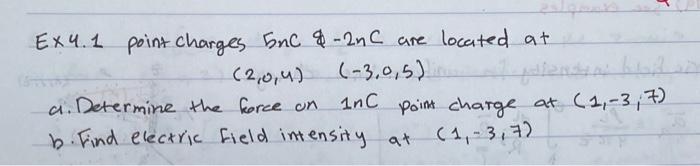 Ex 4.1 point charges 5nC & -2nC are located at
(2,0,4) (-3,0,5)
a. Determine the force on 1nC point charge at (1,-3,7)
b. Find electric Field intensity at (1,-3,7)